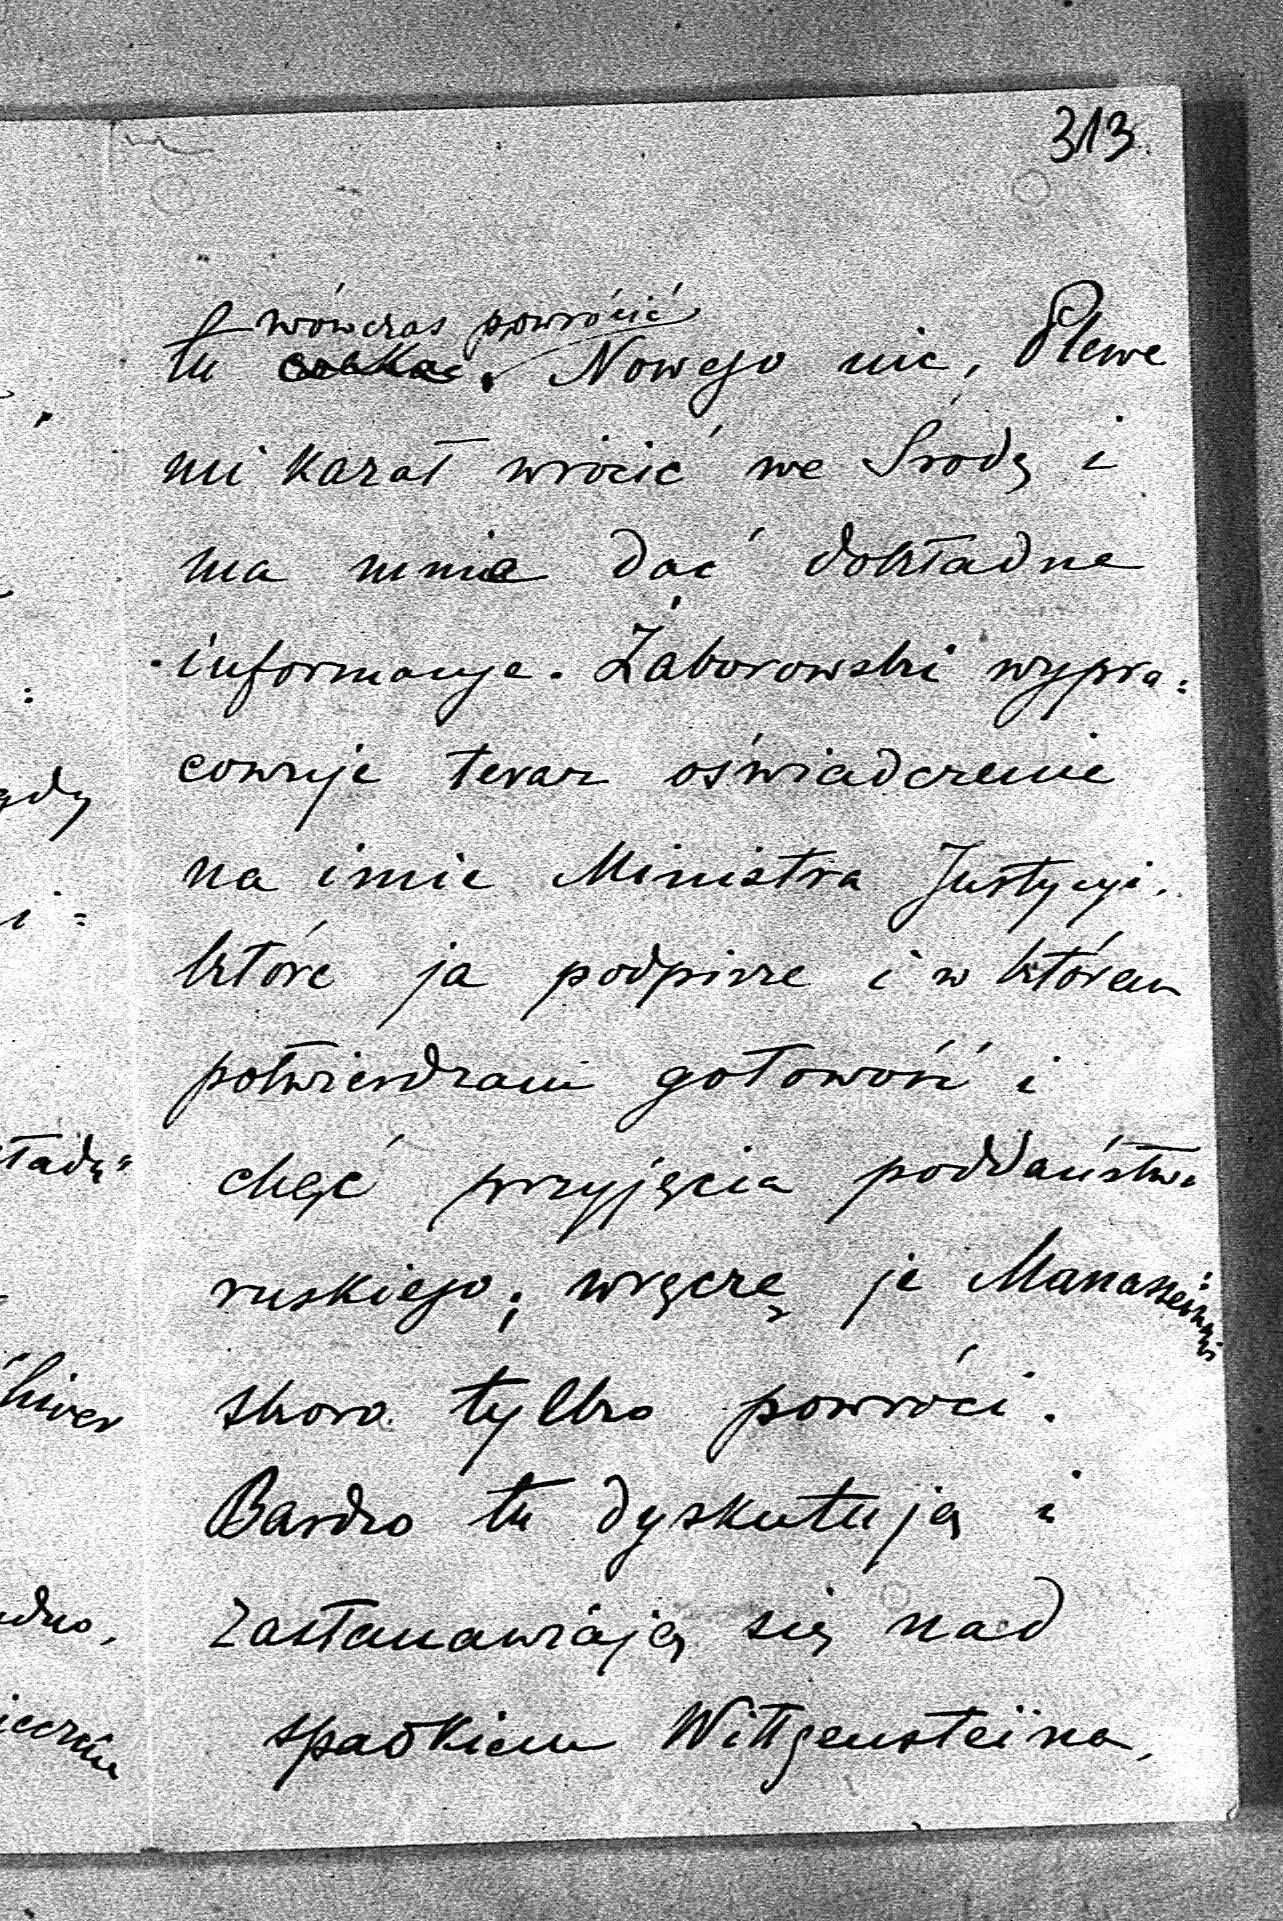 313.
wówczas powrócić
tu. Nowego nic, Plewe
mi kazał wrócić we Środę i
ma mnie dać dokładne
informacye. Żaborowski wypra=
cowuje teraz oświadczenie
na imie Ministra Justycyi.
które ja podpisze i w którem
potwierdzam gotowość i
chęć przyjęcia poddaństwa
ruskiego; wręczę je Manasseinowi
skoro tylko powróci.
Bardzo tu dyskutują i
zastanawiają się nad
spadkiem Wittgensteina.